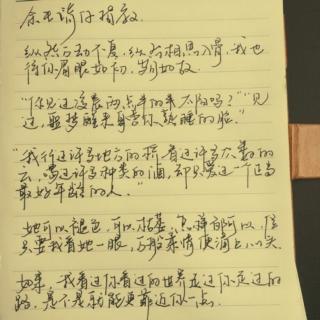 纵然心动不复，纵然相思入骨，我也
待你眉眼如初，岁月如故
"你见过凌晨两点半的太阳吗？""见
过，噩梦醒来身旁你熟睡的脸。"
"我行过许多地方的桥，看过许多次数的
云，喝过许多种类的酒，却只爱过一个正当
最好年龄的人。"
她可以褪色，可以枯萎，怎样都可以，但
只要我看她一眼，万般柔情便涌上心头
如果，我看过你看过的世界，走过你走过的
路，是不是就能更靠近你一点。